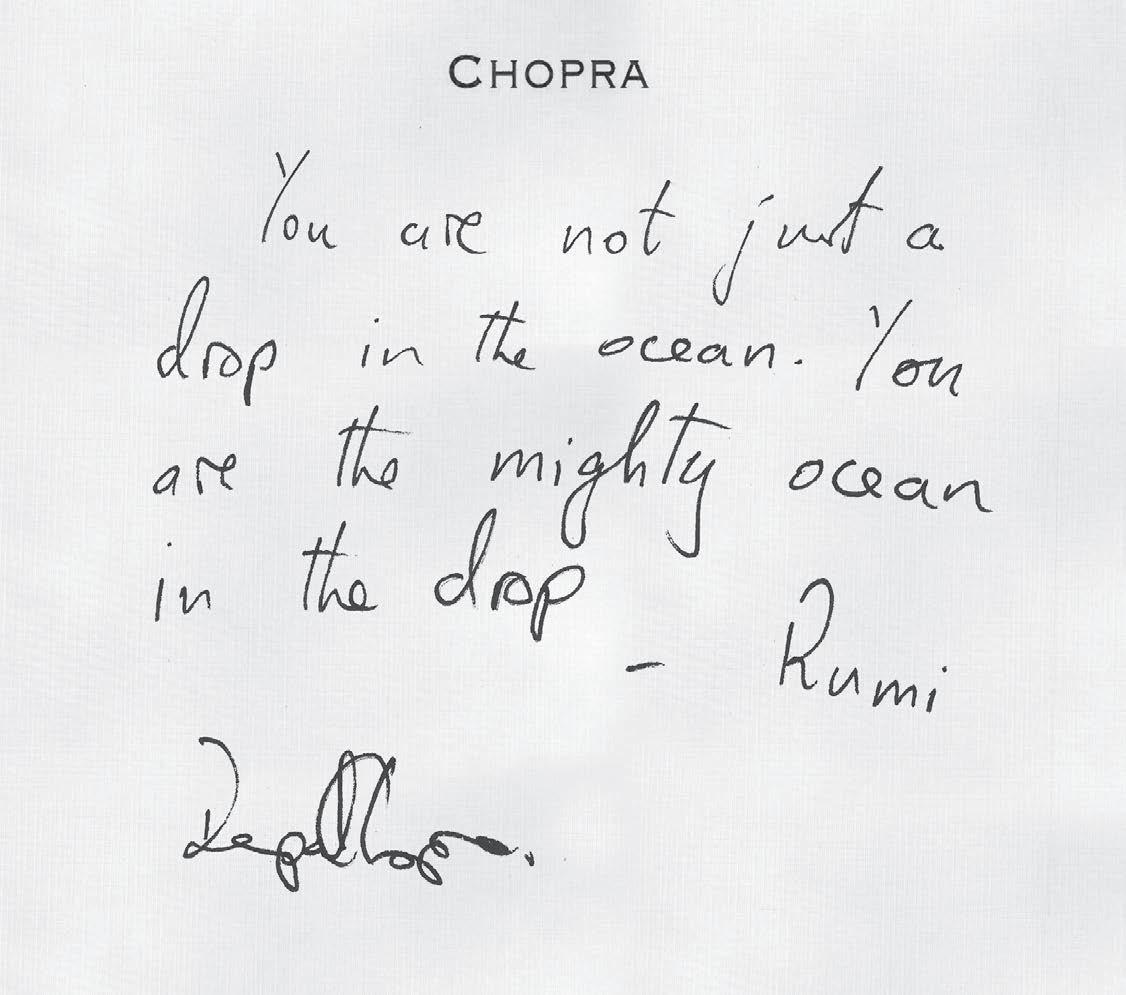 CHOPRA
You are not just a
drop in the ocean. You
are the mighty ocean
in the drop
- Rumi
Deepak Chopra.